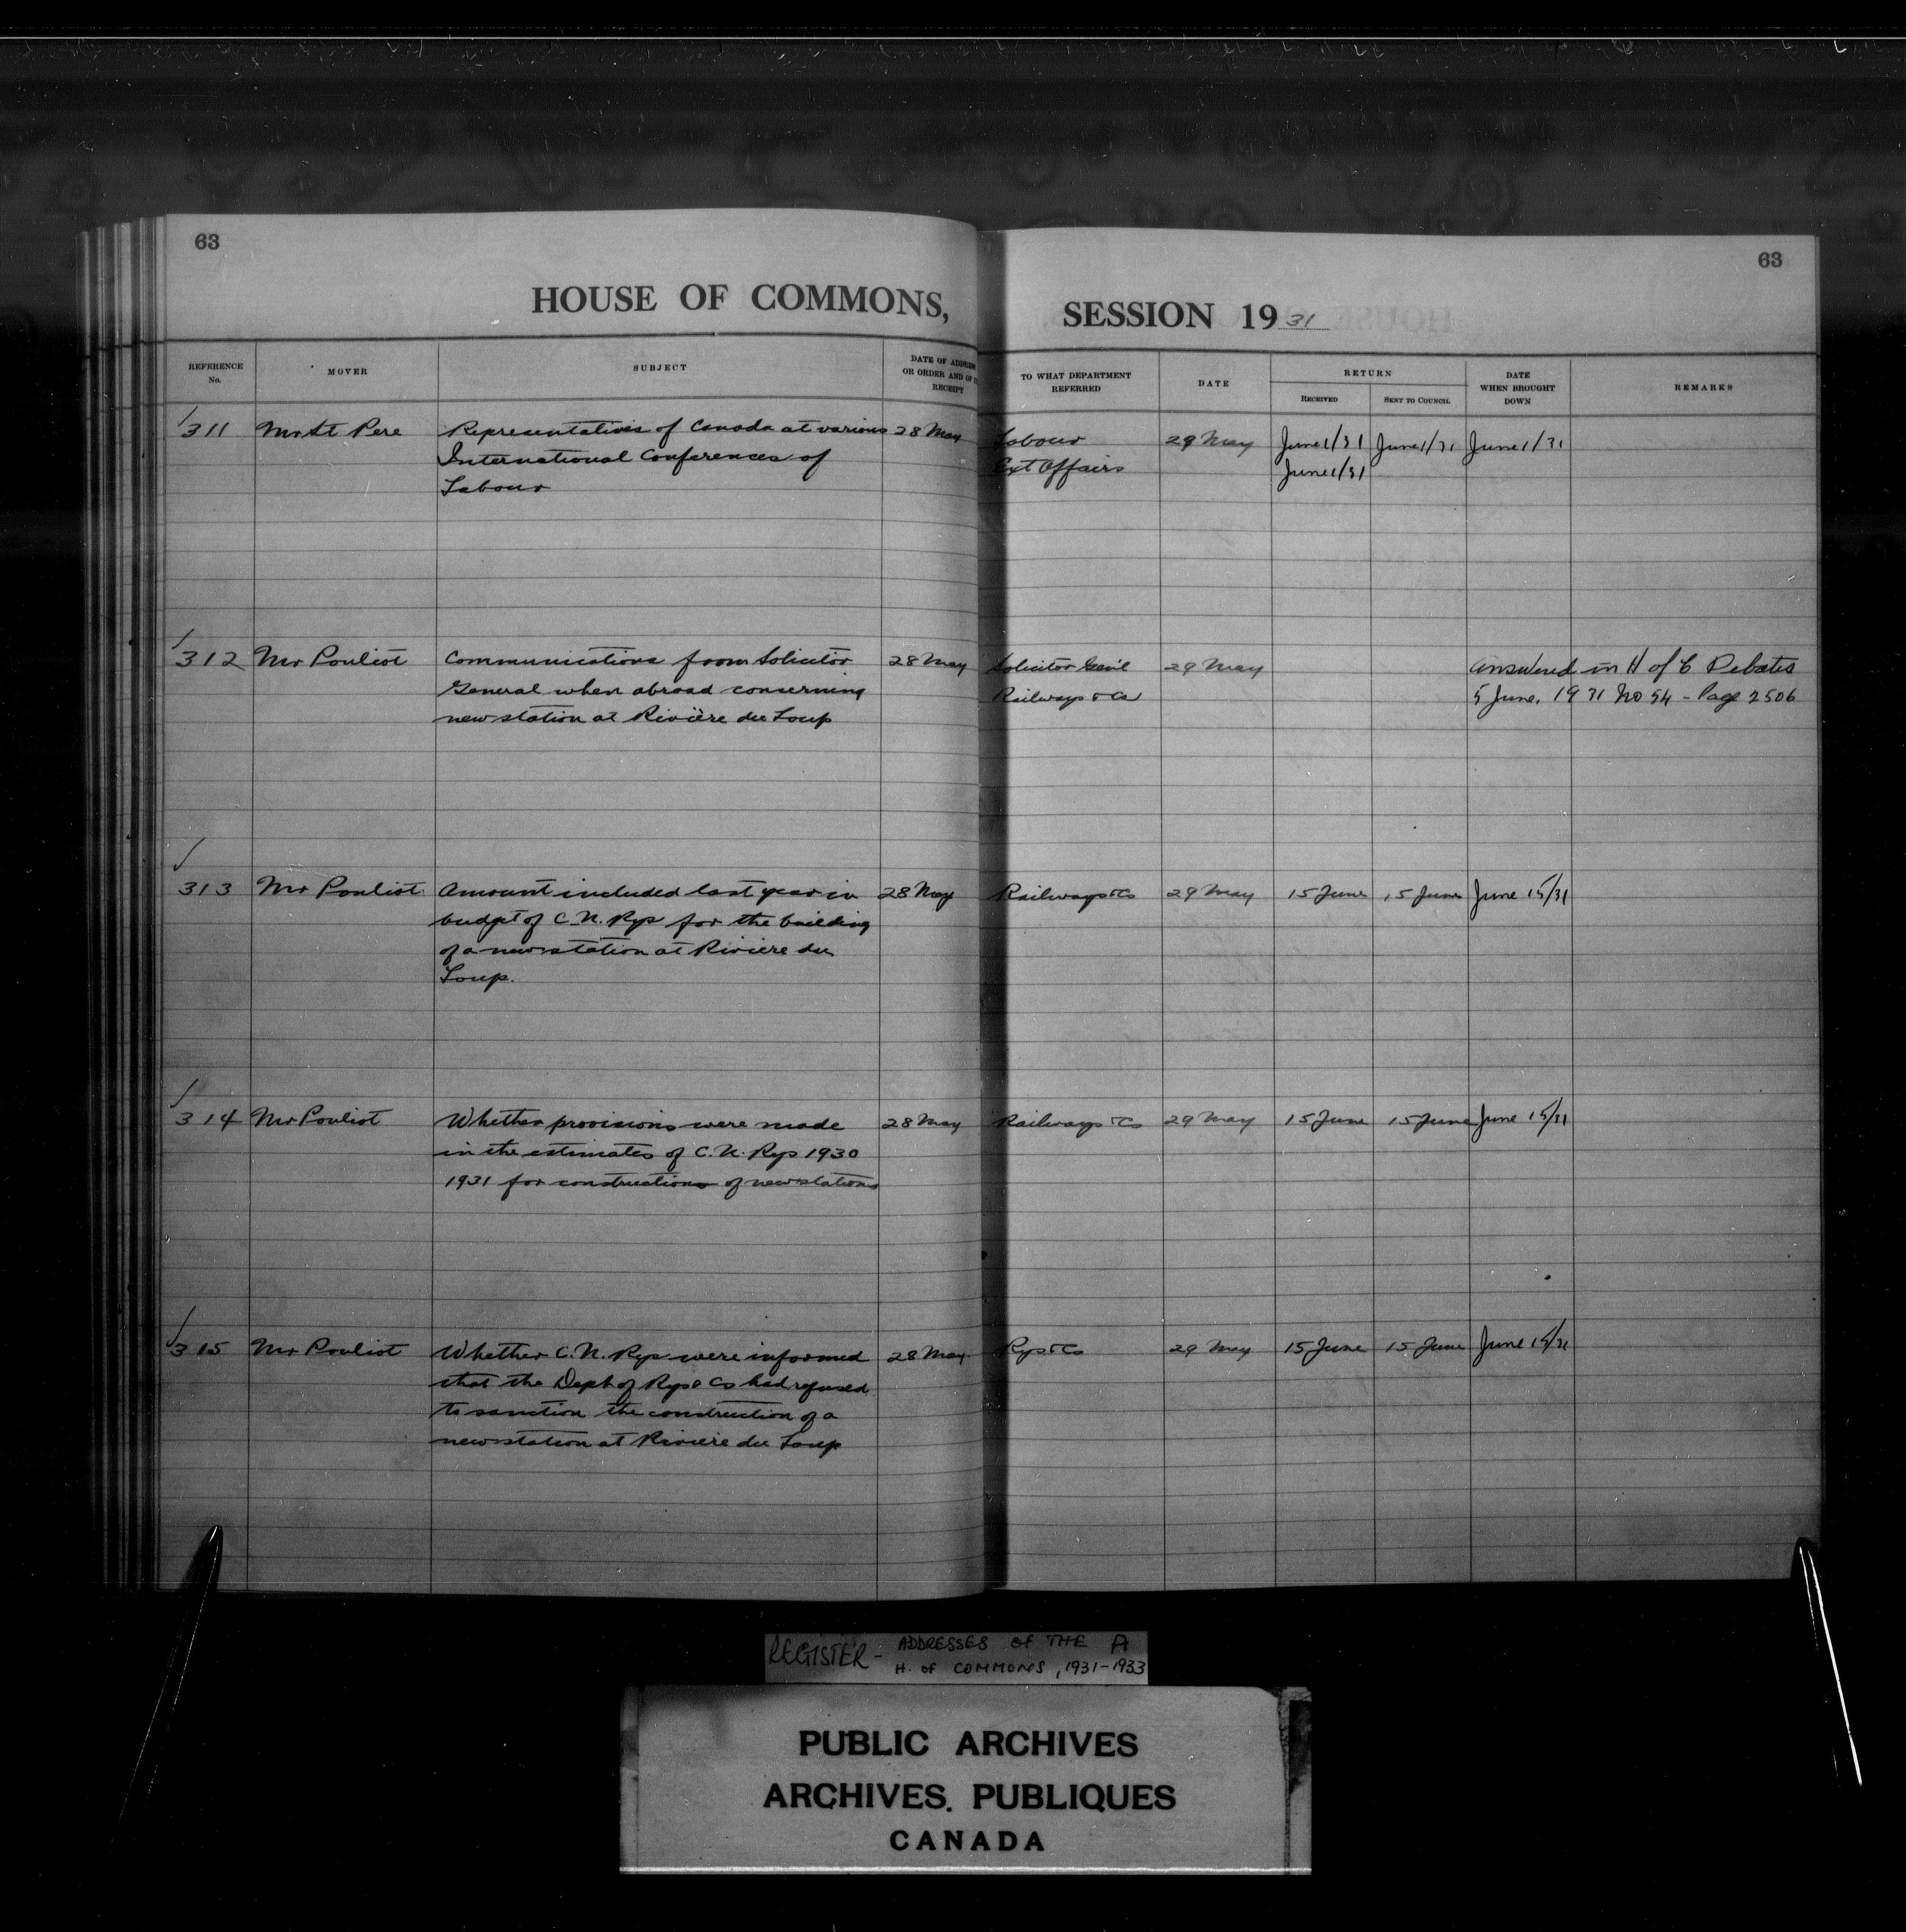 63
63
HOUSE OF COMMONS,
SESSION 19 31
REFERENCE No.
MOVER
SUBJECT
DATE OF ADDRESS OR ORDER AND OF RECEIPT
TO WHAT DEPARTMENT REFERRED
DATE
RETURN
RECEIVED
SENT TO COUNCIL
DATE WHEN BROUGHT DOWN
REMARKS
311 Mr St Pere Representatives of Canada at various 28 May Labour 29 May June 1/31 June 1/31 June 1/31
International Conferences of Ext Affairs June 1/31
Labour
312 Mr Pouliot Communications from Solicitor 28 May Solicitor Gen'l 29 May Answered in H of C Debates
General when abroad concerning Railways & Ca 5 June, 1931 No 54 - Page 2506
new station at Rivière du Loup
313 Mr Pouliot Amount included last year in 28 May Railways & Cs 29 May 15 June 15 June June 15/31
budget of C.N. Rys for the building
of a new station at Riviere du
Loup.
314 Mr Pouliot Whether provisions were made 28 May Railways & Cs 29 May 15 June 15 June June 15/31
in the estimates of C.N. Rys 1930
1931 for constructions of new stations
315 Mr Pouliot Whether C.N. Rys were informed 28 May Rys & Cs 29 May 15 June 15 June June 15/31
that the Dept of Rys & Cs had refused
to sanction the construction of a
new station at Riviere du Loup
REGISTER - ADDRESSES OF THE A
H. OF COMMONS, 1931-1933
PUBLIC ARCHIVES
ARCHIVES PUBLIQUES
CANADA